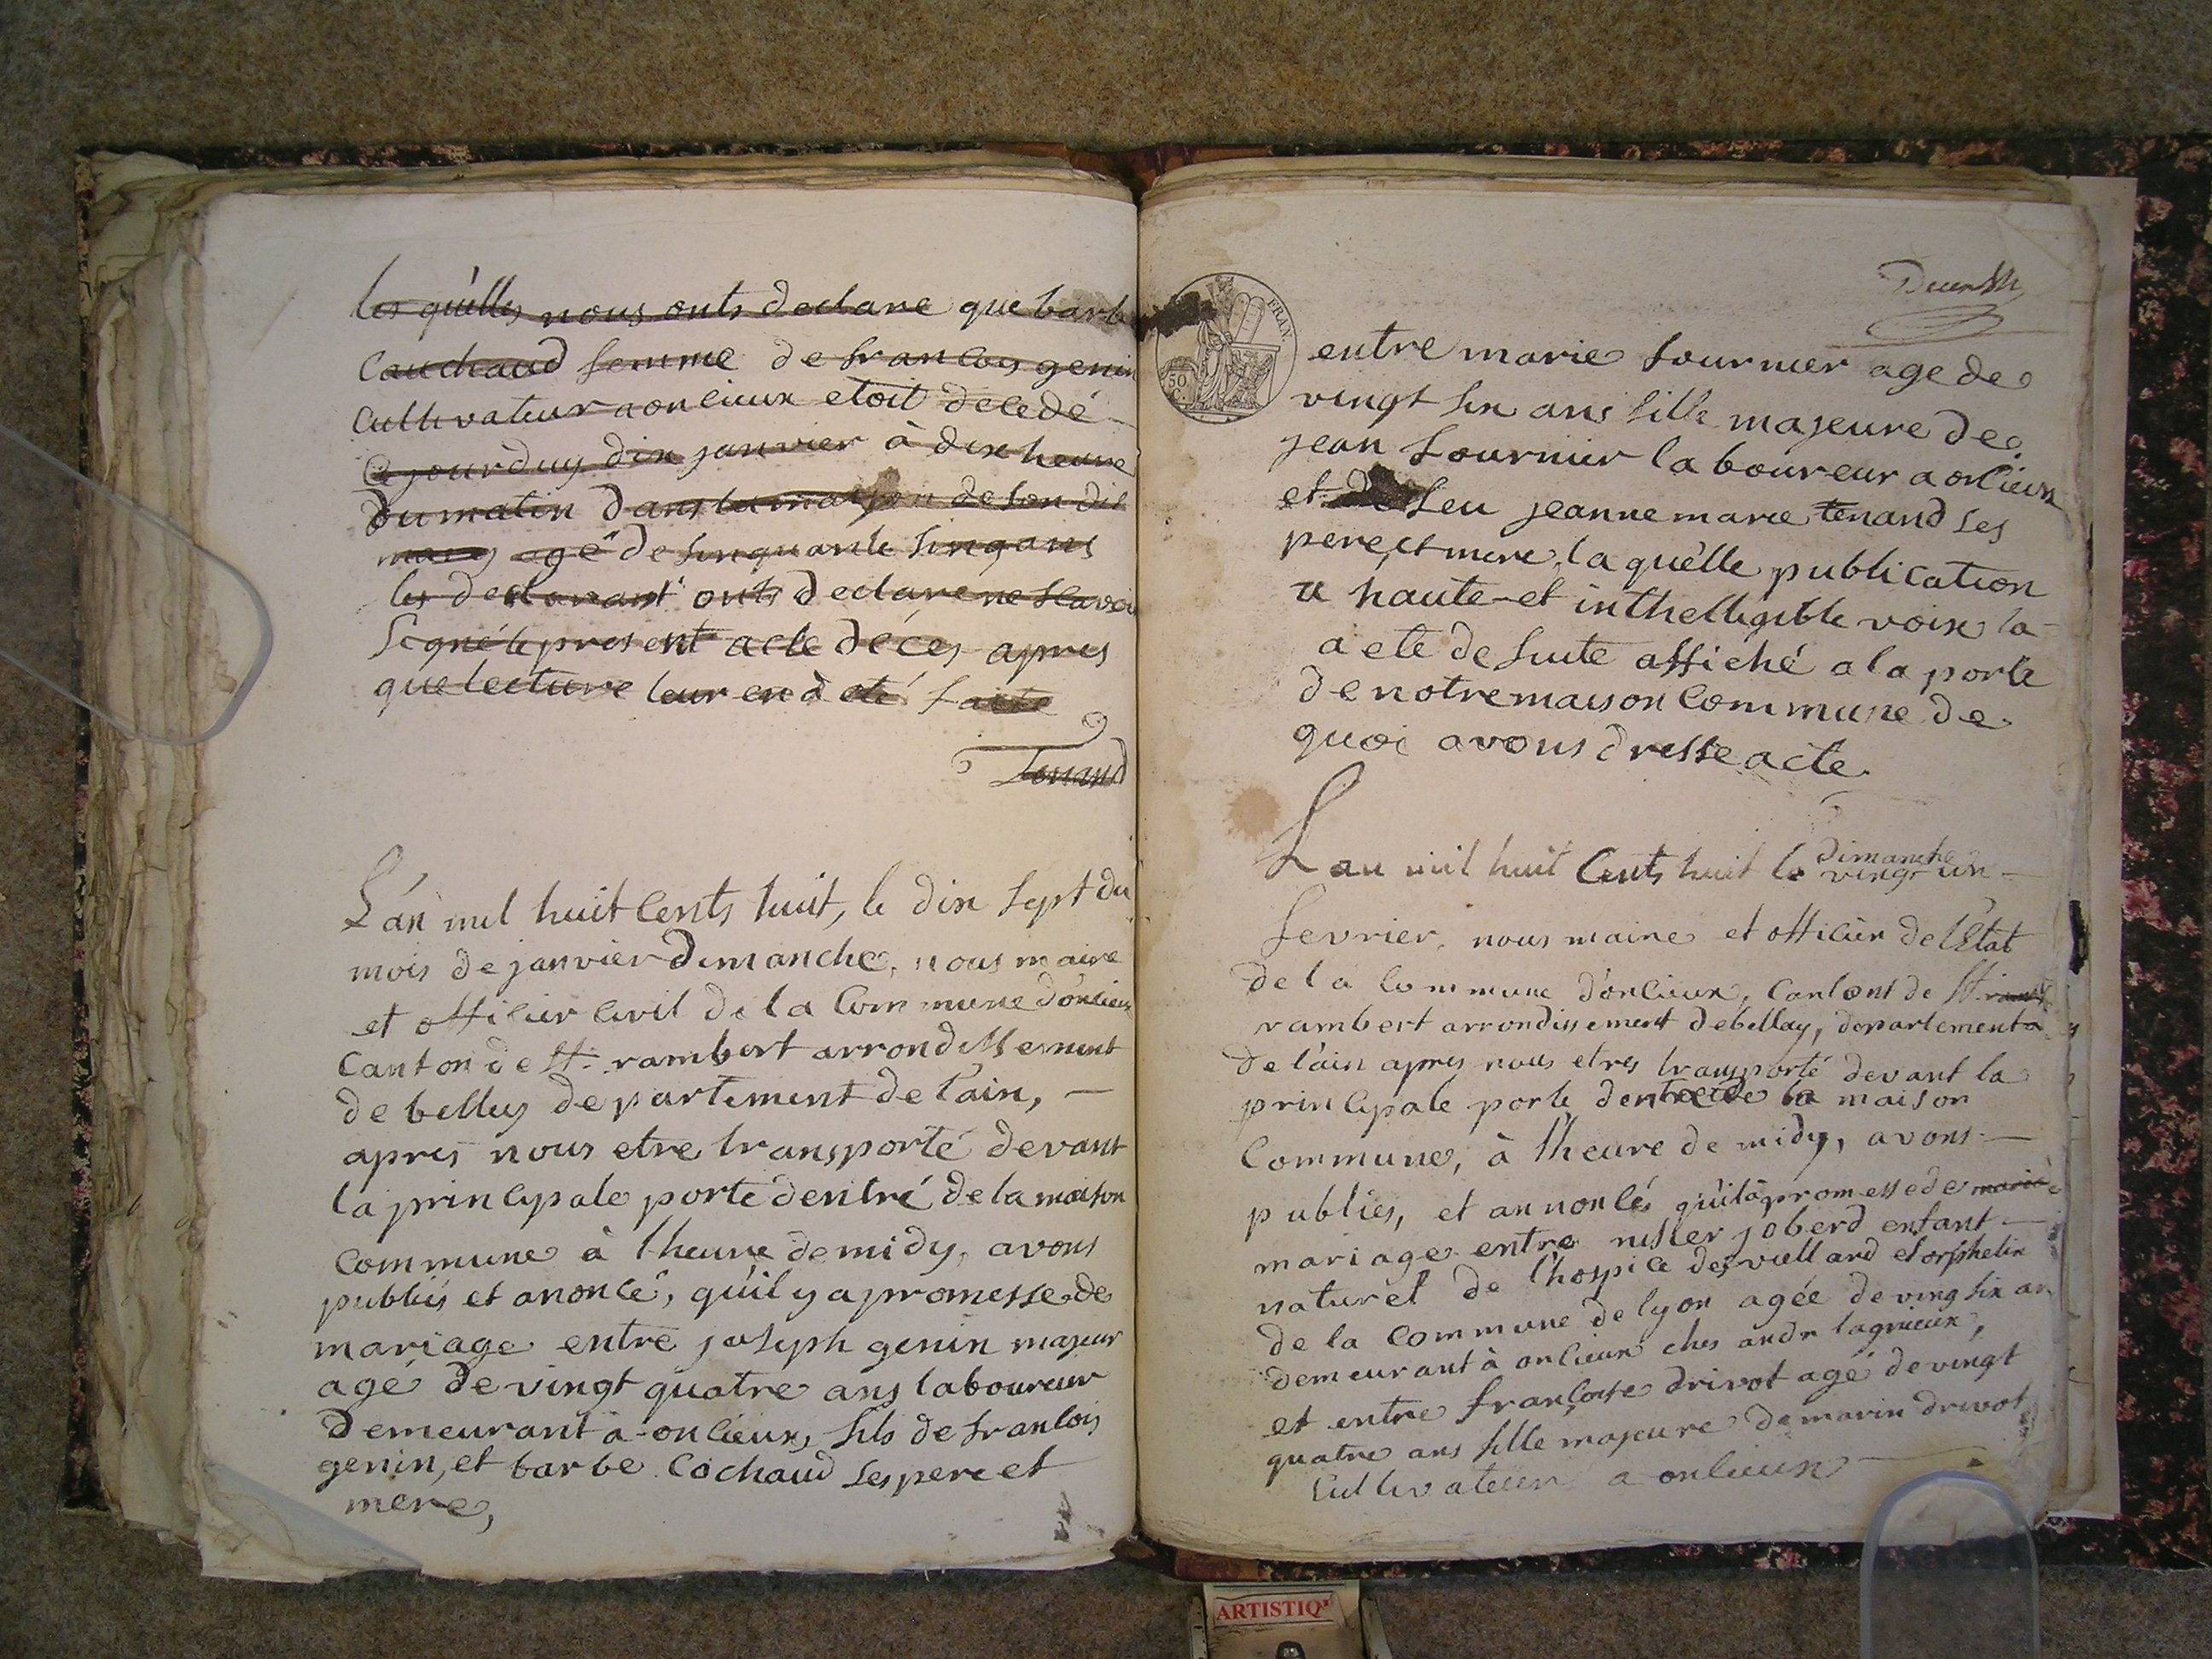 les quèlles nous onts declare que barbe
Cauchaud femme de francois genin
Cultivateur a onlieux etoit decedé
Ce jourduy dix janvier à dix heure
du matin dans la maison de son dit
marÿ agé de sinquante sinq ans
les declarant onts declare ne scavoir
Signé le present acte décès apres
que lecture leur en à eté faite
Tenand
L'an mil huit Cents huit, le dix sept du
mois de janvier dimanche, nous maire
et officier Civil de la Commune d'onlieux
Canton de St. rambert arrondissement
de belley departement de l'ain, —
apres nous etre transporté devant
la principale porte d'entré de la maison
Commune à l'heure de midy, avons
publiés et anoncé, qu'il y a promesse de
mariage entre joseph genin majeur
agé de vingt quatre ans laboureur
demeurant à onlieux, fils de francois
genin, et barbe Cochaud ses pere et
mere,
FRAN.
50
C.
entre marie fournier age de
vingt six ans fille majeure de
jean fournier laboureur a onlieux
et de feu jeanne marie tenand ses
pere et mere, la quèlle publication
a haute et inthelligible voix la
a ete de suite affiché a la porte
de notre maison Commune de
quoi avons dresse acte.
L'an mil huit Cents huit le dimanche vingt un —
fevrier, nous maire et officier de l'Etat
de la Commune d'onlieux, Canton de St.
rambert arrondissement de belley, departement
de l'ain apres nous etres transporté devant la
principale porte dentree de la maison
Commune, à l'heure de midy, avons —
publiés, et annoncés qu'il à promesse de marié
mariage entre joberd enfant —
naturèl de l'hospice des viellard et orphelin
de la Commune de lyon agée de ving six an
demeurant à onlieux ches andre lagnieux,
et entre francoise drivot agé de vingt
quatre ans fille majeure de marin drivot
Cultivateur a onlieux —
ARTISTIQ